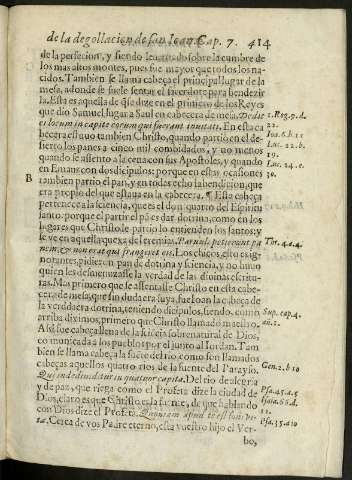 de la degollacion de san Iuan. Cap. 7. 414
de la perfecion, y siendo leuantado sobre la cumbre de
los mas altos montes, pues fue mayor que todos los na-
cidos. Tambien se llama cabeça el principal lugar de la
mesa, adonde se suele sentar el sacerdote para bendezir
la. Esta es aquella de q̃ se dize en el primero de los Reyes
que dio Samuel lugar a Saul en cabecera de mesa. Dedit
ei locum in capite eorum qui fuerant inuitati. En esta ca
becera estuuo tambien Christo, quando partio en el de-
sierto los panes a cinco mil combidados, y no menos
quando se assento a la cena con sus Apostoles, y quando
en Emaus con dos dicipulos: porque en estas ocasiones
tambien partio el pan, y en todas echo la bendicion, que
era propio del que estaua en la cabecera. ¶ Esta cabeça
pertenece a la sciencia, que es el don quarto del Espiritu
santo: porque el partir el pã es dar dotrina, como en los
lugares que Christo le partio lo entienden los santos: y
se ve en aquella quexa de Ieremias. Paruuli petierunt pa
nem, & non erat qui frangeret eis. Los chicos, esto es ig-
norantes, pidieron pan de dotrina y sciencia, y no huuo
quien les desmenuzasse la verdad de las diuinas escritu-
ras. Mas primero que se assentasse Christo en esta cabe-
cera de mesa, que sin duda era suya, fue Ioan la cabeça de
la verdadera dotrina, teniendo dicipulos, siendo, como
arriba diximos, primero que Christo llamado maestro.
Assi fue cabeça llena de la sciencia sobrenatural de Dios,
comunicada a los pueblos por el junto al Iordan. Tam
bien se llama cabeça la fuente del rio, como son llamados
cabeças aquellos quatro rios de la fuente del Parayso.
Qui inde diuiditur in quatuor capita. Del rio de alegria
y de paz, que riega como el Profeta dize la ciudad de
Dios, claro es que Christo es la fuente, de que hablando
con Dios dize el Profeta. Quoniam apud te est fons vi-
tæ. Cerca de vos Padre eterno, esta vuestro hijo el Ver-
bo,
B
1. Reg. 9. d.
22.
Ioa. 6. b. 11
Luc. 22. b.
19.
Luc. 24. e.
30.
Thr. 4. a. 4.
Sup. cap. 4.
Gen. 2. b 10
Psa. 45. a. 5
Isaiæ. 66. d.
12.
Psa. 35. a 10